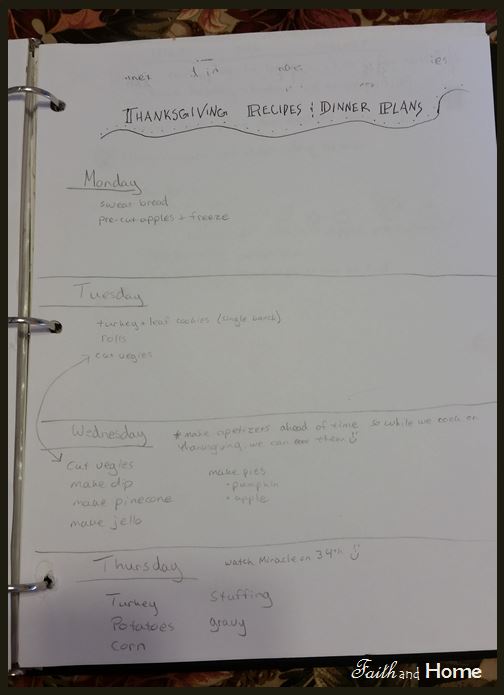 THANKSGIVING RECIPES & DINNER PLANS
Monday
sweat bread
pre-cut apples + freeze
Tuesday
turkey + leaf cookies (single batch)
rolls
cut vegies
Wednesday
* make apetizers ahead of time so while we cook on
thanksgiving, we can eat them
cut vegies
make dip
make pinecone
make jello
make pies
• pumpkin
• apple
Thursday
watch Miracle on 34th
Turkey
Potatoes
corn
Stuffing
gravy
Faith and Home